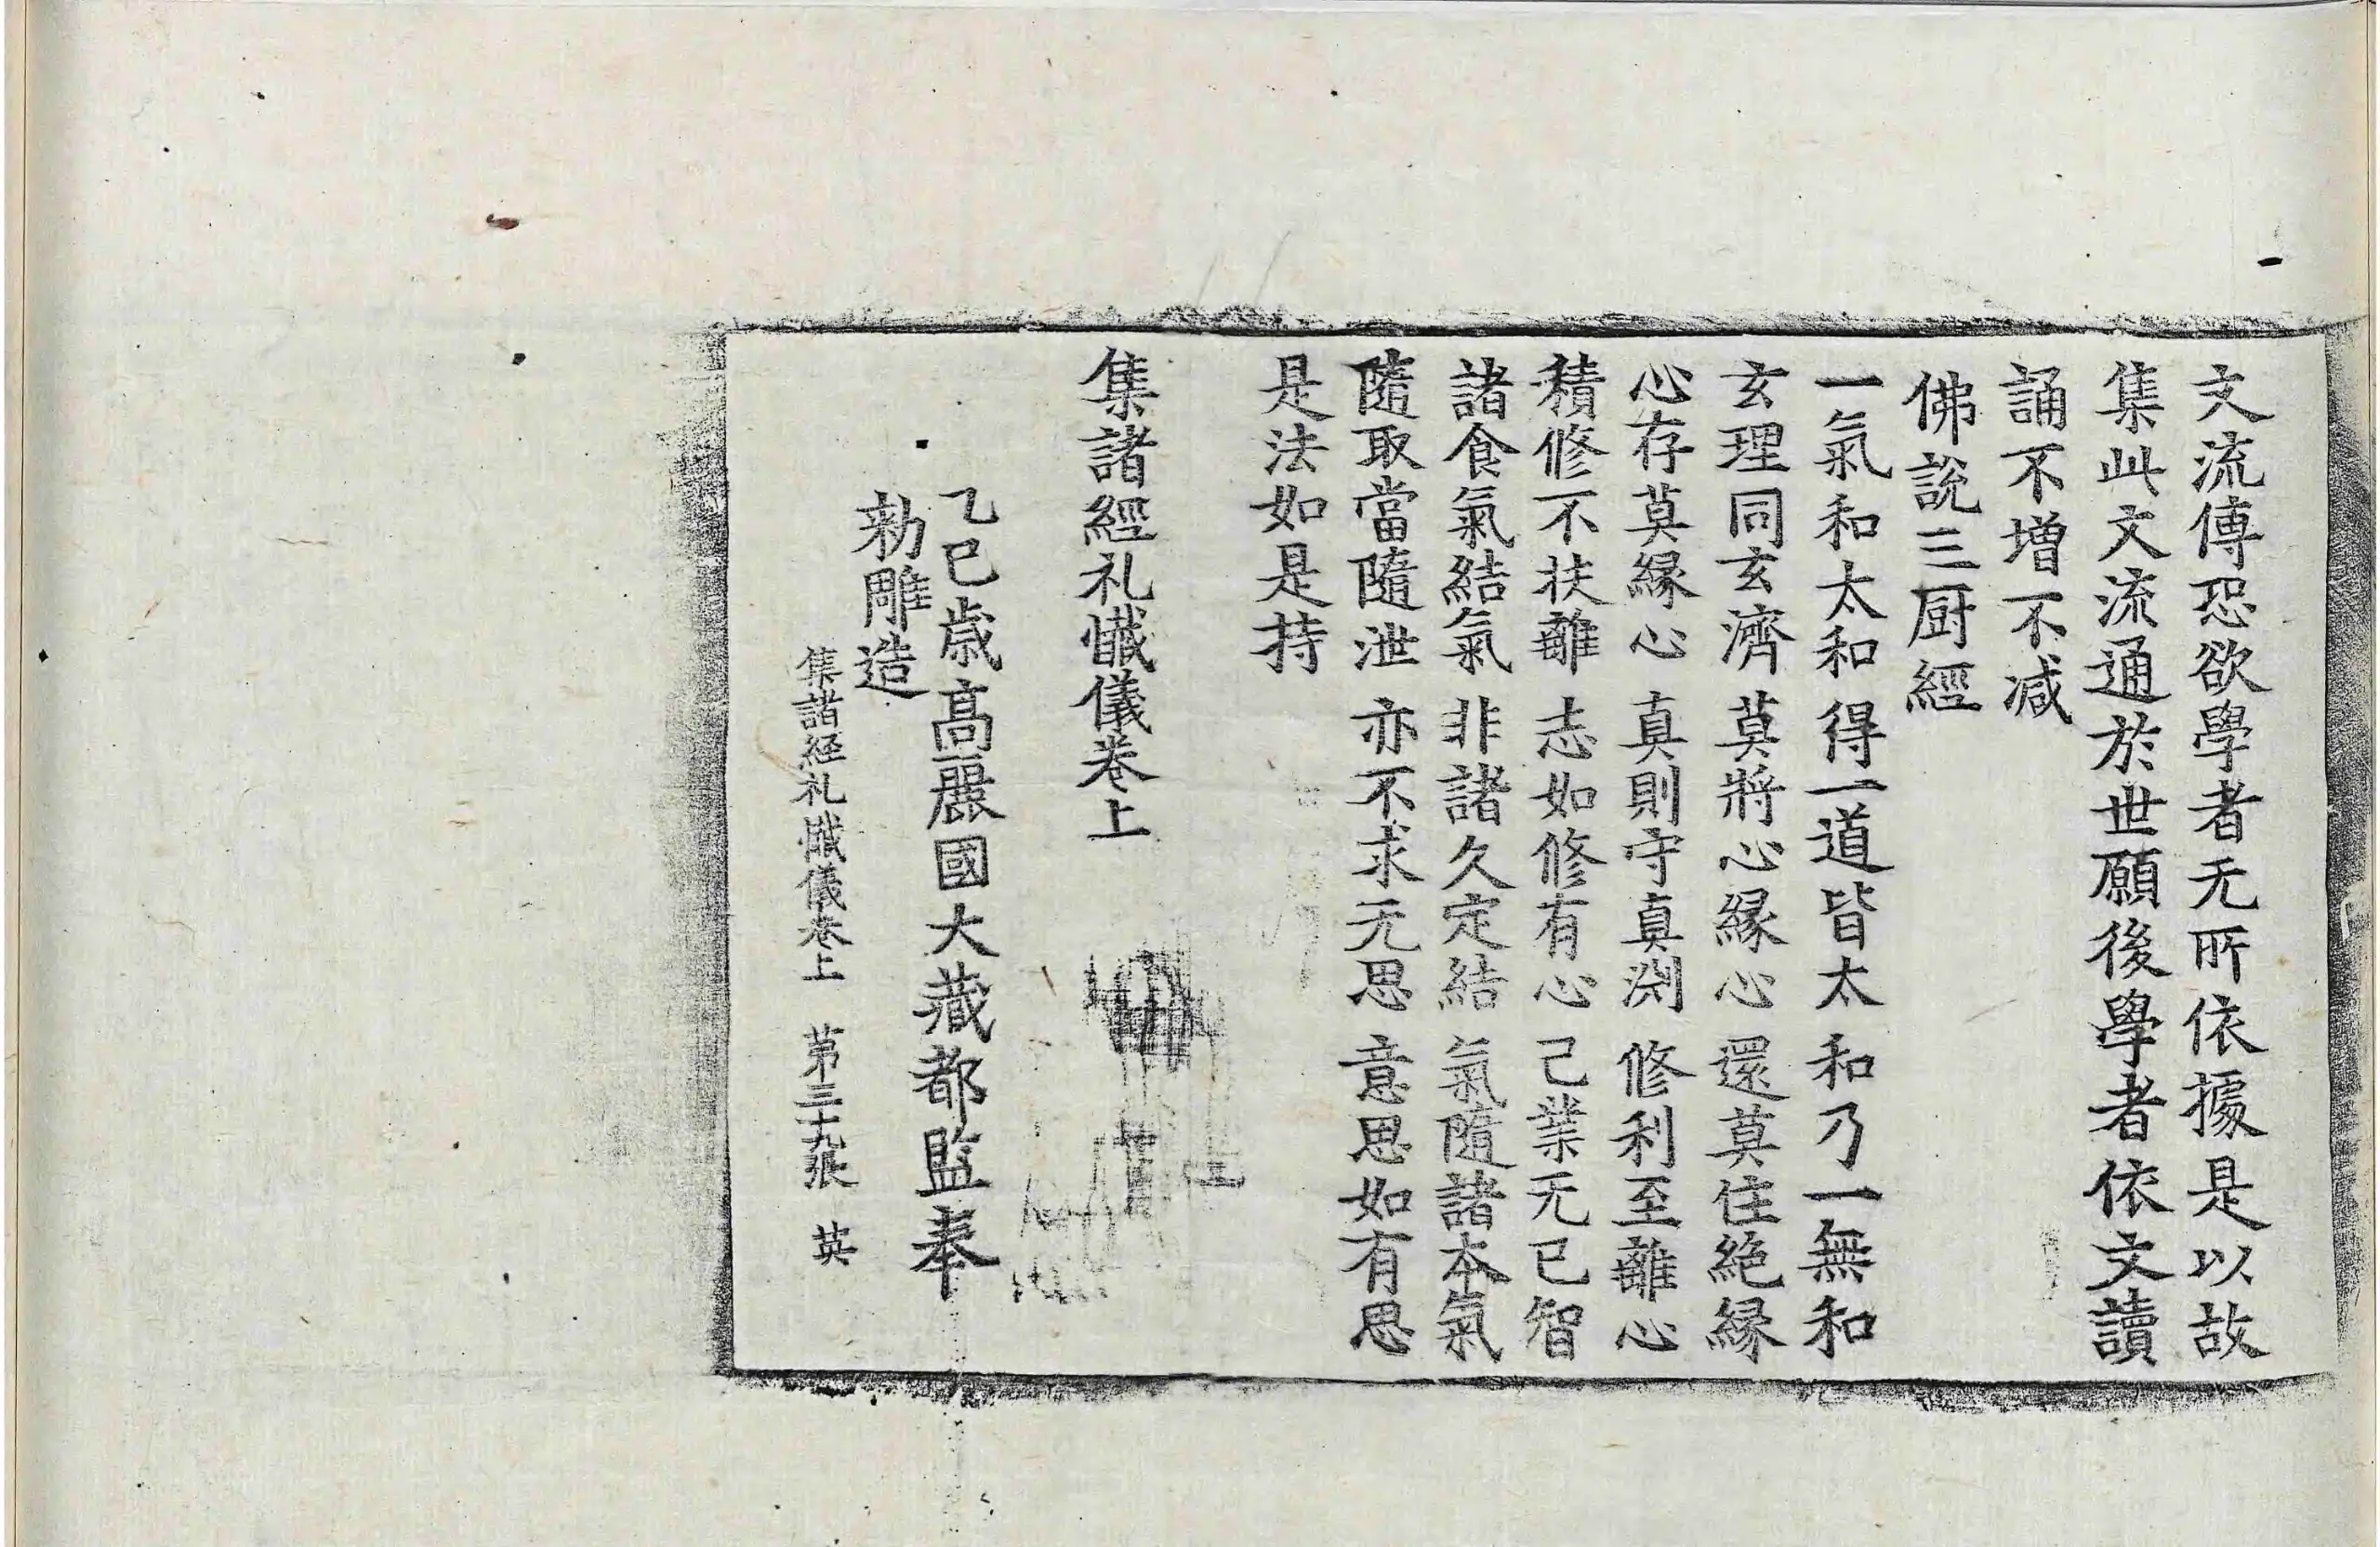 文流傳恐欲學者无所依據是以故
集此文流通於世願後學者依文讀
誦不增不减
佛說三厨經
一氣和太和 得一道皆太 和乃一無和
玄理同玄濟 莫將心緣心 還莫住絕緣
心存莫緣心 真則守真渕 修利至離心
積修不扶離 志如修有心 己業无已智
諸食氣結氣 非諸久定結 氣隨諸本氣
隨取當隨泄 亦不求无思 意思如有思
是法如是持
集諸經礼懺儀卷上
乙巳歳高麗國大藏都監奉
勑雕造
集諸經礼懺儀卷上 苐三十九張 英